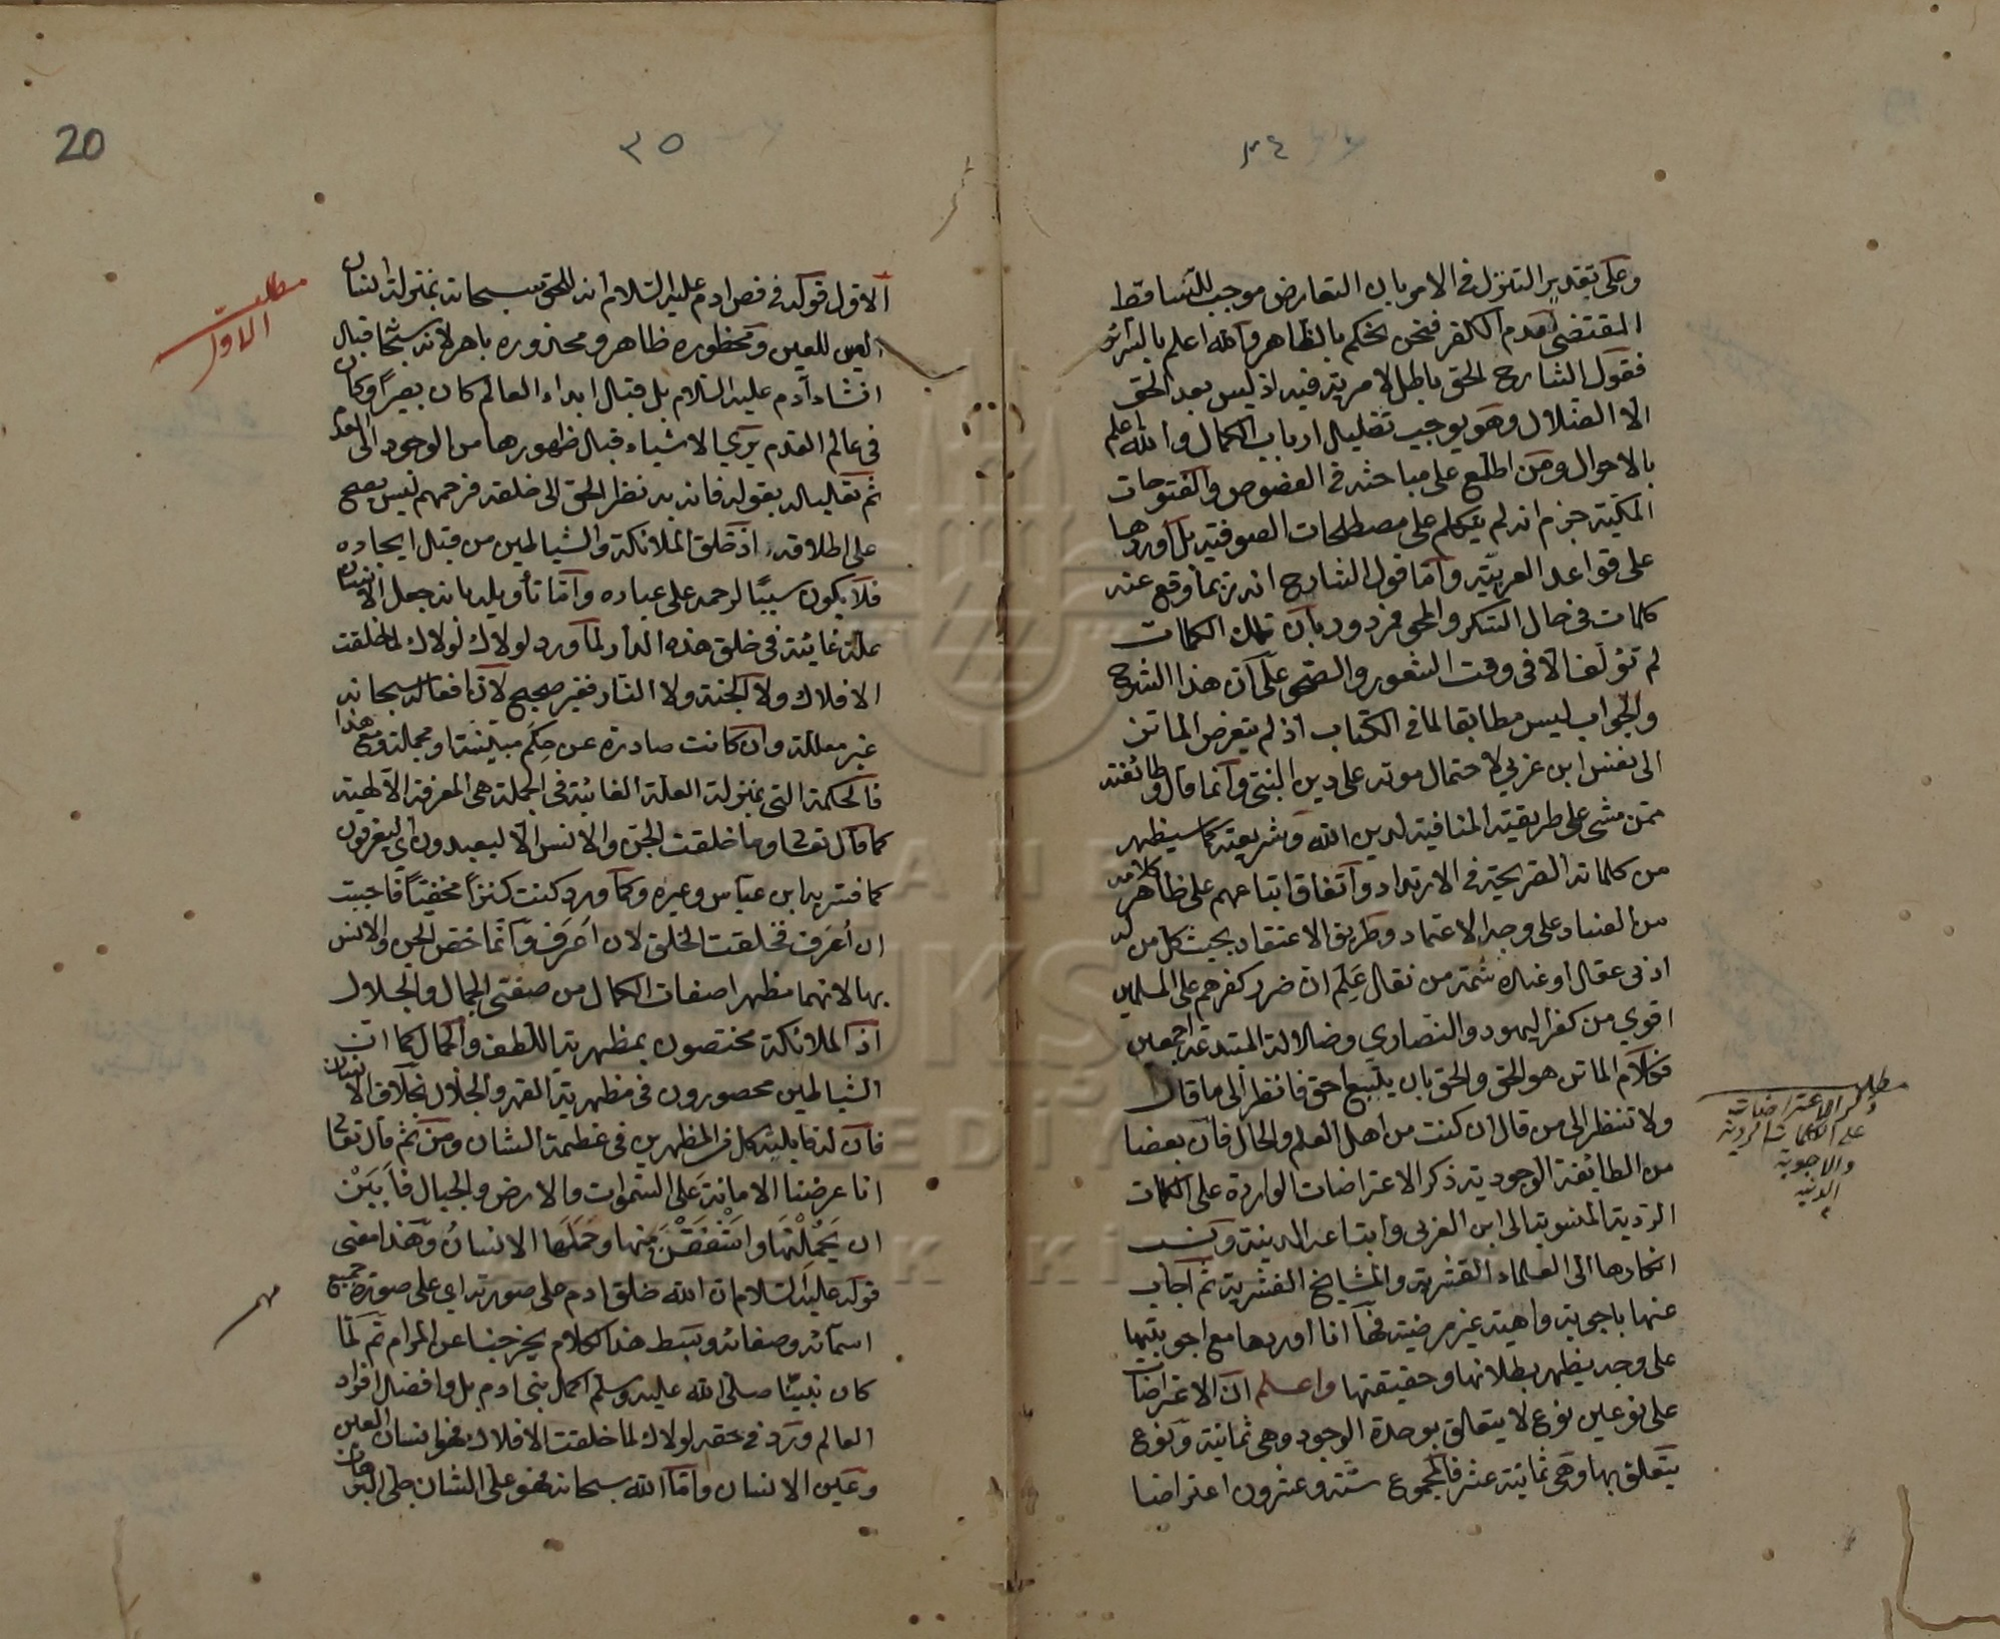 ٣٤
وعلى تقدير التنزل في الامر بان التعارض موجب للتساقط
المقتضى لعدم الكفر فنحن نحكم بالظاهر والله اعلم بالسرائر
فقول الشارح لحق باطل لا مرية فيه اذ ليس بعد الحق
الا الضلال وهو يوجب تضليل ارباب الكمال والله اعلم
بالاحوال ومن اطلع على مباحثه في الفصوص والفتوحات
المكية جزم انه لم يتكلم على مصطلحات الصوفية بل اوردها
على قواعد العربية واما قول الشارح انه ربما وقع عنه
كلمات في حال السكر والمحى فمردود بان تلك الكلمات
لم تؤلف الا في وقت الشعور والصحو على ان هذا الشرح
والجواب ليس مطابقا لما في الكتاب اذ لم يتعرض الماتن
الى نفس ابن عربي لاحتمال موته على دين النبي وانما قال وطائفته
ممن مشى على طريقته المنافية لدين الله وشريعته كما سيظهر
من كلماته الصريحة في الارتداد واتفاق اتباعهم على ظاهر كلامه
من الفساد على وجه الاعتماد وطريق الاعتقاد بحيث كل من له
ادنى عقل او عنده شمة من نقل علم ان ضرر كفرهم على المسلمين
اقوى من كفر اليهود والنصارى وضلالة المبتدعة اجمعين
فكلام الماتن هو الحق والحق بان يتبع احق فانظر الى ما قال
ولا تنظر الى من قال ان كنت من اهل العلم والحال فان بعضا
من الطائفة الوجودية ذكر الاعتراضات الواردة على الكلمات
الردية المنسوبة الى ابن العربي واتباعه الدينية ونسب
انكارها الى العلماء القشرية والمشايخ القشرية ثم اجاب
عنها باجوبة واهية غير مرضية فها انا اوردها مع اجوبتها
على وجه يظهر بطلانها وحقيقتها واعلم ان الاعتراضات
على نوعين نوع لا يتعلق بوحدة الوجود وهي ثمانية ونوع
يتعلق بها وهي ثمانية عشر فالمجموع ستة وعشرون اعتراضا
مطلب
ذكر الاعتراضات
على الكلمات الردية
والاجوبة
الدنيه
٣٥
20
الاول قوله في فص ادم عليه السلام انه للحق سبحانه بمنزلة انسان
العين للعين ومحظوره ظاهر ومحذوره باهر لانه سبحانه قبل
انشاء آدم عليه السلام بل قبل ابداء العالم كان بصيرا وكان
في عالم القدم يرى الاشياء قبل ظهورها من الوجود الى العدم
ثم تعليله بقوله فانه به نظر الحق الى خلقه فرحمهم ليس يصح
على اطلاقه اذ خلق الملائكة والشياطين من قبل ايجاده
فلا يكون سببا لرحمه على عباده واما تأويله بانه جعل الانسان
علة غائية في خلق هذه الدار لما ورد لولاك لولاك لما خلقت
الافلاك ولا الجنة ولا النار فغير صحيح لان افعاله سبحانه
غير معللة وان كانت صادرة عن حكم مبينة او مجملة ومع هذا
فالحكمة التي بمنزلة العلة الغائية في الجملة هي المعرفة الالهية
كما قال تعالى وما خلقت الجن والانس الا ليعبدون اي ليعرفون
كما فسر به ابن عباس وغيره وكما ورد كنت كنزا مخفيا فاحببت
ان اعرف فخلقت الخلق لان اعرف وانما خص الجن والانس
بها لانهما مظهرا صفات الكمال من صفتي الجمال والجلال
اذ الملائكة مختصون بمظهرية اللطف والجمال كما ان
الشياطين محصورون في مظهرية القهر والجلال بخلاف الانسان
فان له قابلية كل من المظهرين في عظيمة الشان ومن ثم قال تعالى
انا عرضنا الامانة على السموات والارض والجبال فابين
ان يحملنها واشفقن منها وحملها الانسان وهذا معنى
قوله عليه السلام ان الله خلق ادم على صورته اي على صورة جميع
اسمائه وصفاته وبسط هذا الكلام يخرجنا عن المرام ثم لما
كان نبينا صلى الله عليه وسلم اكمل بني ادم بل وافضل افراد
العالم ورد في حقه لولاك لما خلقت الافلاك فهو انسان العين
وعين الانسان واما الله سبحانه فهو على الشان جلي البرهان
مطلب
الاول
مهم